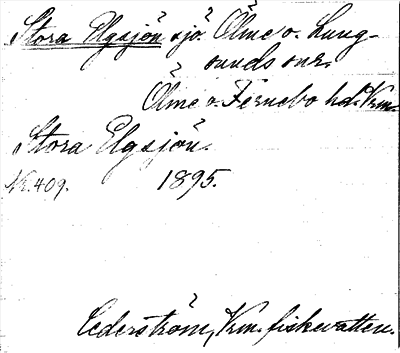 Stora Elgsjön sjö. Ölme o. Lung-
sunds snr.
Ölme o. Fernebo hd. Vrm.
Stora Elgsjön.
N. 409. 1895.
Cederström, Vrm. fiskevatten.